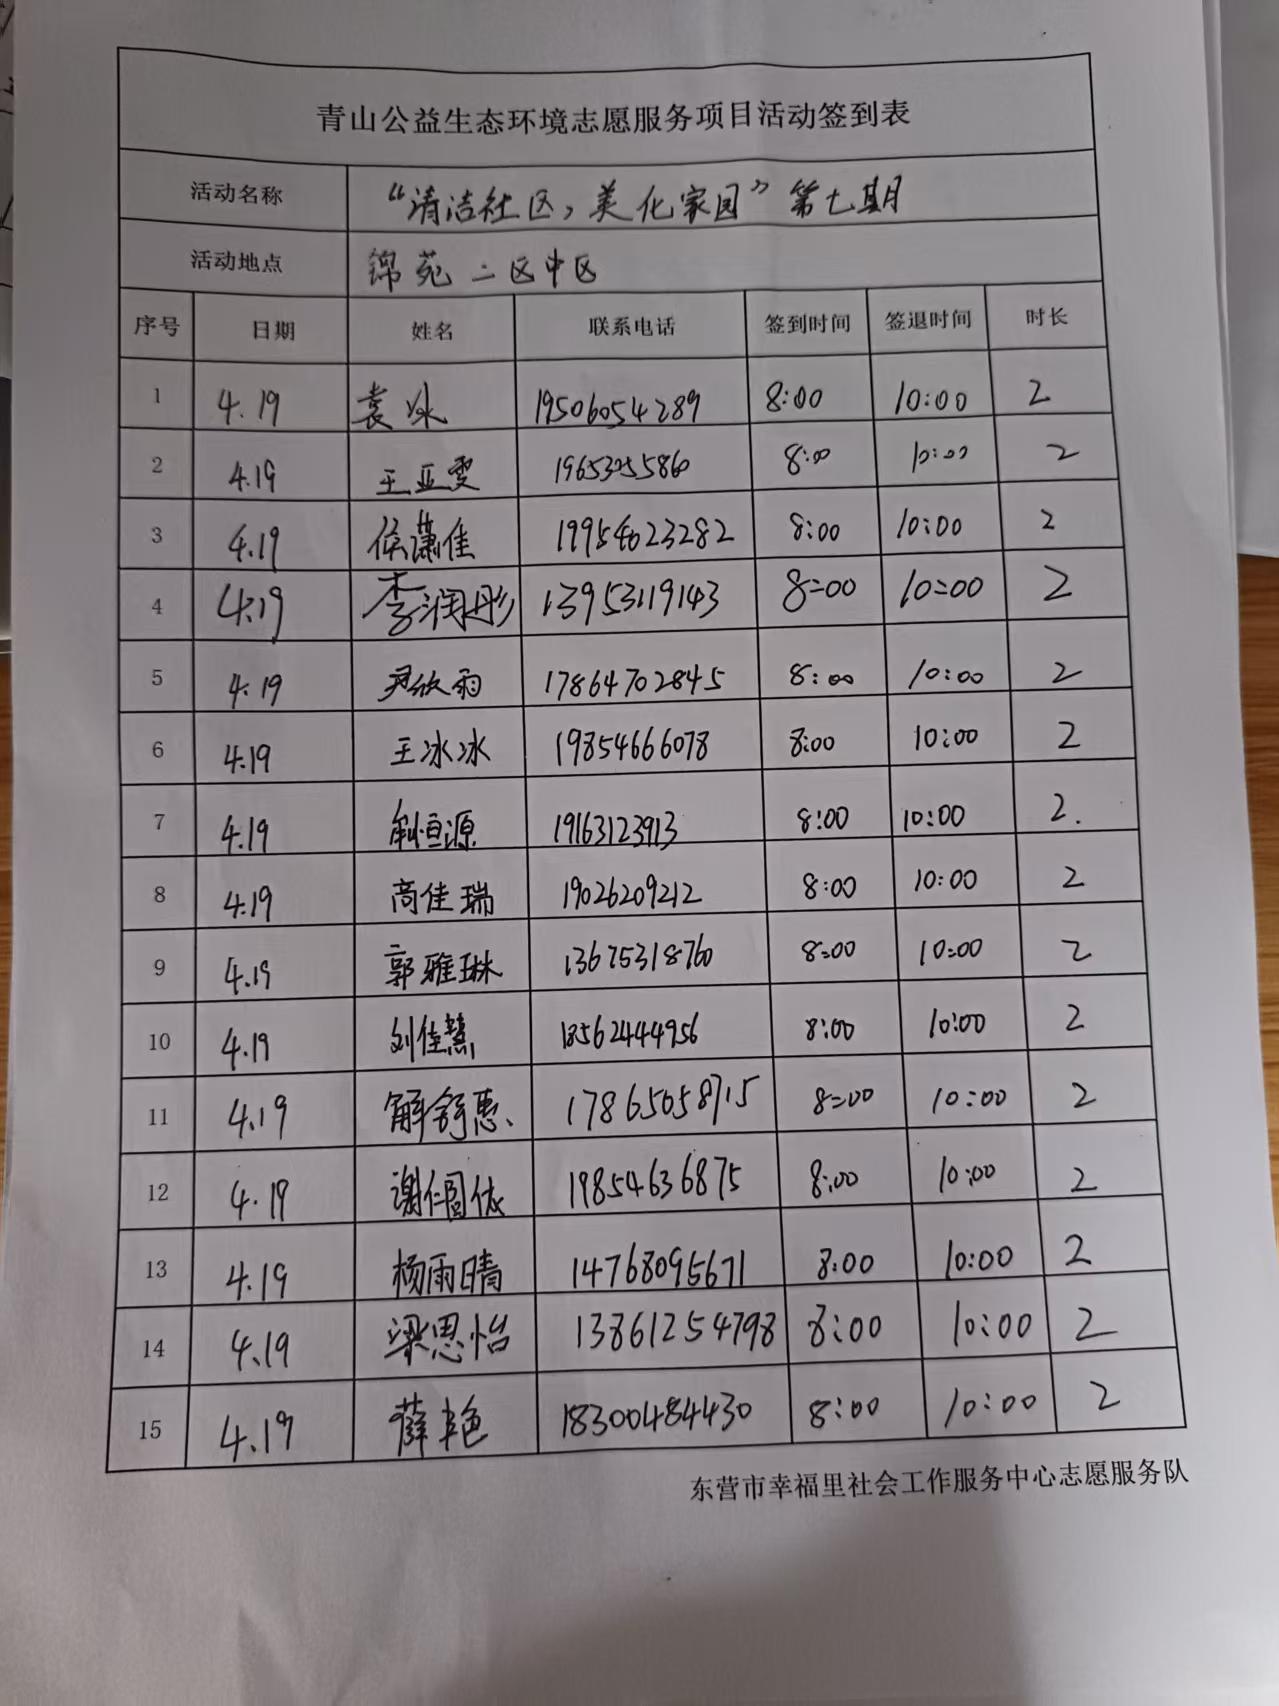 青山公益生态环境志愿服务项目活动签到表
活动名称 “清洁社区，美化家园”第七期
活动地点 锦苑二区中区
序号 日期 姓名 联系电话 签到时间 签退时间 时长
1 4.19 袁冰 19506054289 8:00 10:00 2
2 4.19 王亚雯 19653255860 8:00 10:00 2
3 4.19 侯潇佳 19954623282 8:00 10:00 2
4 4.19 李润彤 13953119143 8:00 10:00 2
5 4.19 尹欣雨 17864702845 8:00 10:00 2
6 4.19 王冰冰 19854666078 8:00 10:00 2
7 4.19 恒源 19163123913 8:00 10:00 2.
8 4.19 高佳瑞 19026209212 8:00 10:00 2
9 4.19 郭雅琳 13675318760 8:00 10:00 2
10 4.19 刘佳慧 18562444956 8:00 10:00 2
11 4.19 解舒惠 17865058715 8:00 10:00 2
12 4.19 谢 19854636875 8:00 10:00 2
13 4.19 杨雨晴 14768095671 8:00 10:00 2
14 4.19 梁思怡 13861254798 8:00 10:00 2
15 4.19 薛艳 18300484430 8:00 10:00 2
东营市幸福里社会工作服务中心志愿服务队